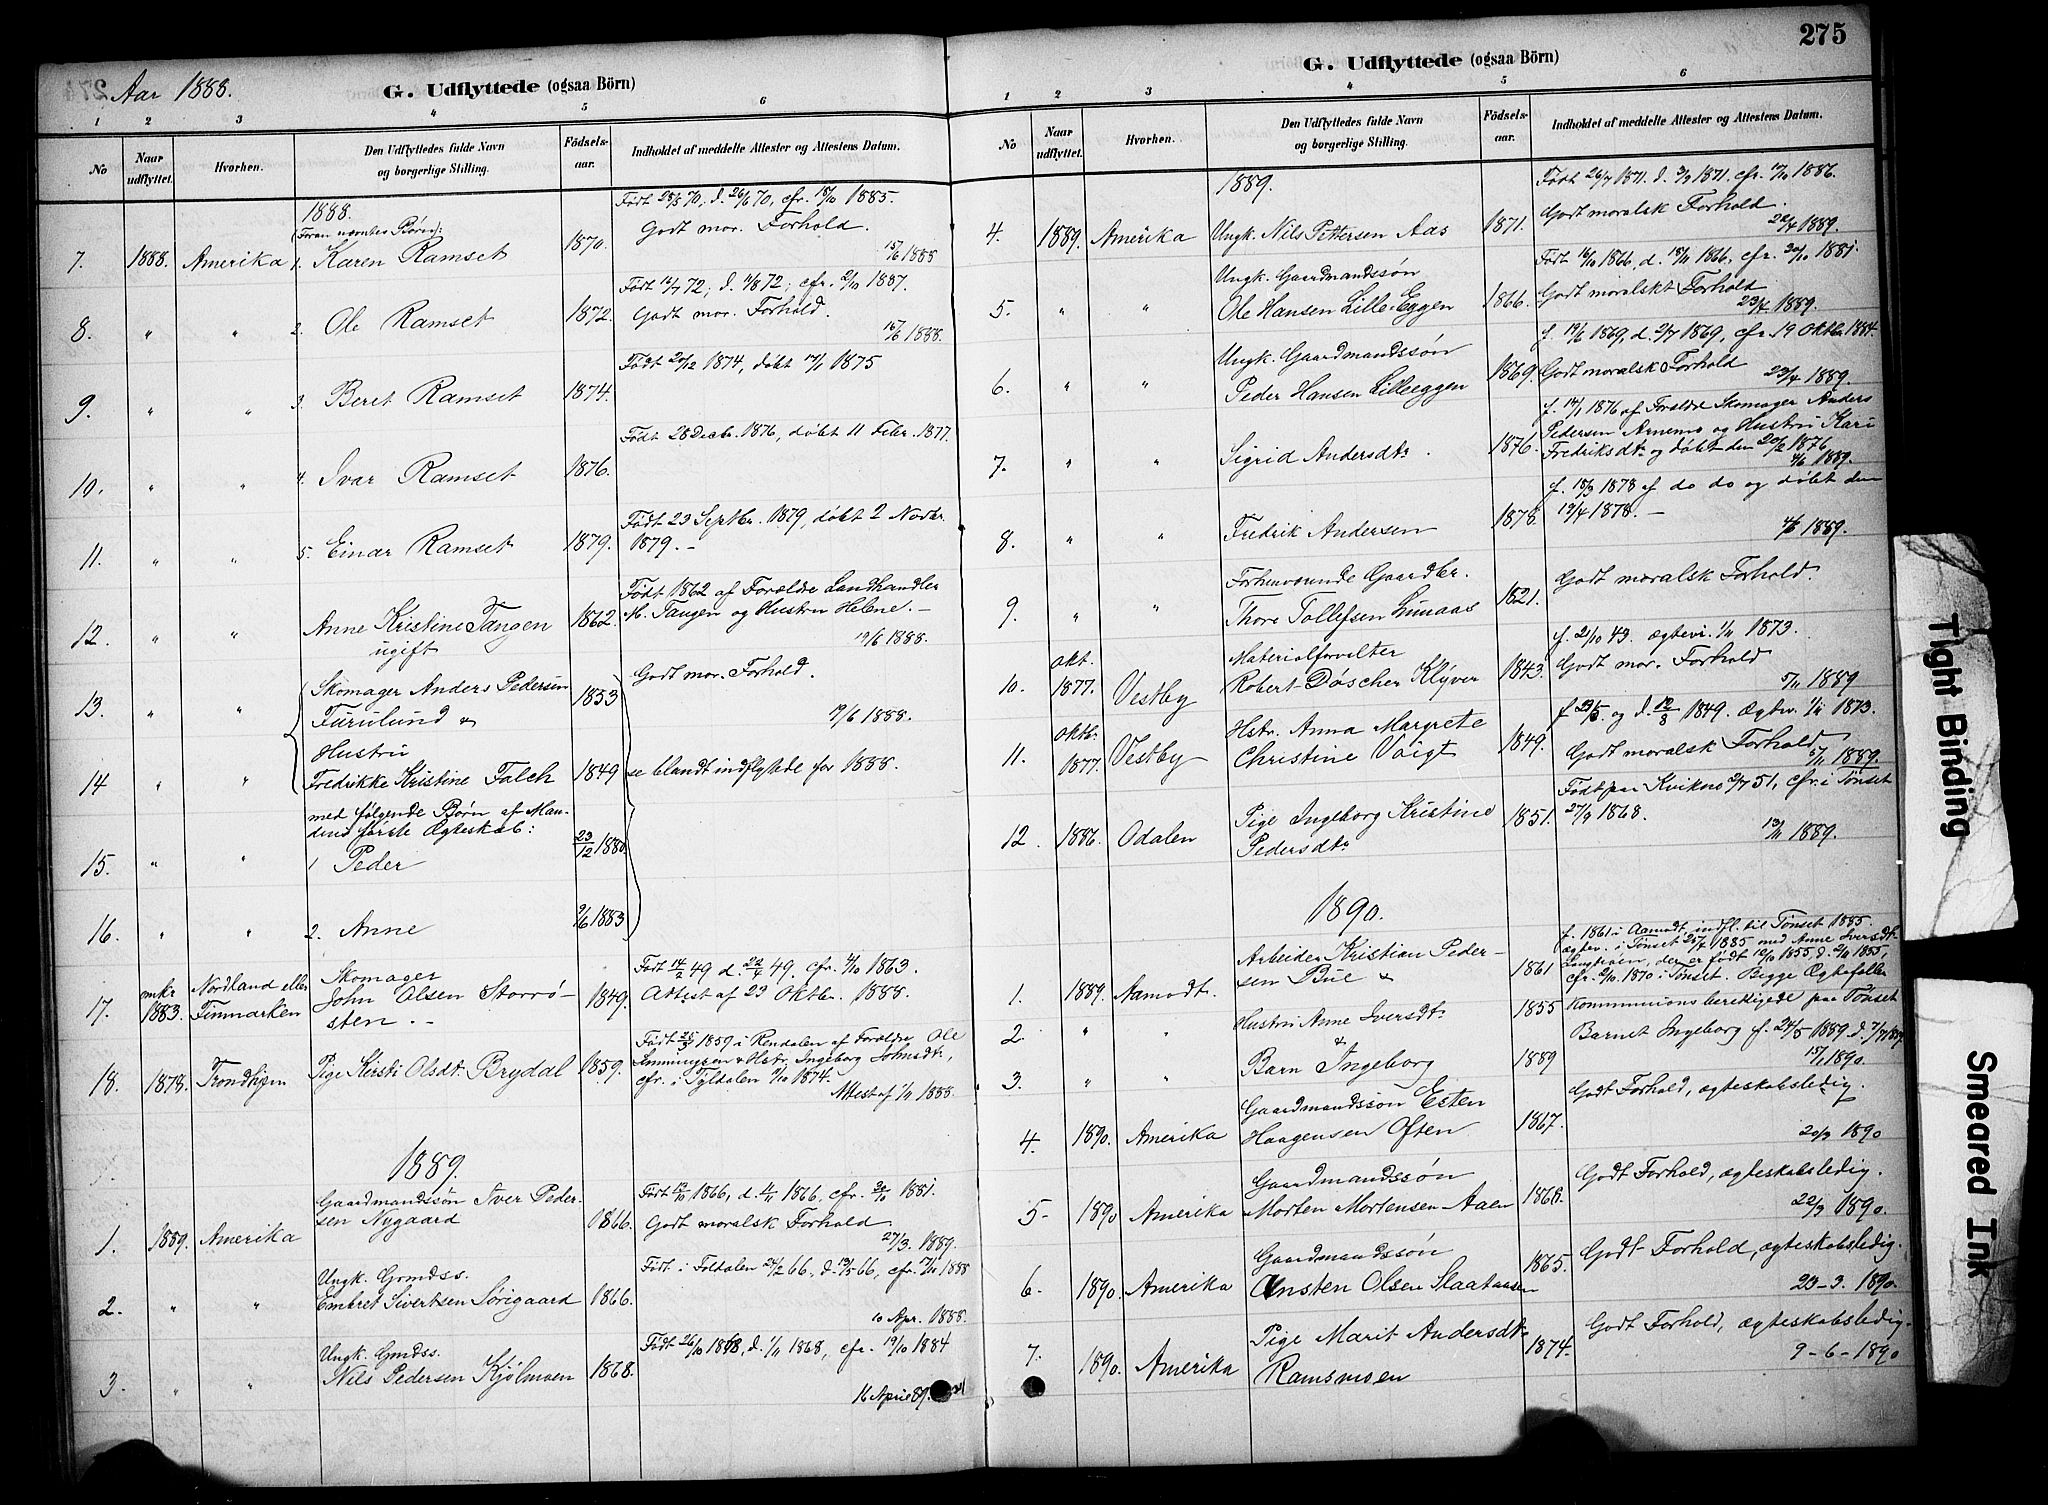 Aar 1888.
G. Udflyttede (ogsaa Börn)
1 2 3 4 5 6
No
Naar udflyttet.
Hvorhen.
Den Udflyttedes fulde Navn
og borgerlige Stilling.
Födsels-
aar.
Indholdet af meddelte Attester og Attestens Datum.
1888.
(Foran nævntes Børn):
Født 28/3 70, d. 26/6 70, cfr. 18/10 1885.
7. 1888. Amerika 1. Karen Ramset 1870. Godt mor. Forhold.
15/6 1888
Født 16/7 72; d. 11/8 72; cfr. 2/10 1887.
8. " " 2. Ole Ramset 1872. Godt mor. Forhold.
16/6 1888.
Født 20/12 1874, døbt 17/1 1875
9. " " 3. Beret Ramset 1874.
Født 28 Decbr. 1876, døbt 11 Febr. 1877.
10. " " 4. Ivar Ramset 1876.
Født 23 Septbr. 1879, døbt 2 Novbr.
11. " " 5. Einar Ramset 1879. 1879. –
Født 1862 af Forældre Landhandler
12. " " Anne Kristine Tangen 1862. M. Tangen og Hustru Helene. –
ugift
19/6 1888.
Skomager Anders Pedersen 1853 Godt mor. Forhold.
13. " " Furulund &
19/6 1888.
Hustru
14 " " Fredrikke Kristine Falch 1849 se blandt indflytede for 1888.
med følgende Børn af Man-
dens første Ægteskab:
15. " " 1 Peder 23/12 1880.
16. " " 2. Anne 9/6 1883
Skomager
Født 14/2 49 d. 22/4 49. cfr. 4/10 1863.
17. mkr 1883. Nordland eller Finmarken John Olsen Storrø- 1849. Attest af 23 Oktbr. 1888.
sten. –
Født 25/3 1859 i Rendalen af Forældre Ole
18. 1878. Trondhjem Pige Kersti Olsdt. Brydal 1859. Emmingsen & Hstr. Ingeborg Johnsdtr,
cfr. i Tyldalen 11/10 1874.
Attest af 1/11 1888.
1889.
Gaardmandssøn Iver Peder-
sen Nygaard
Født 12/10 1866, d. 4/11 1866, cfr. 30/10 1881.
1. 1889. Amerika 1866. Godt moralsk Forhold
27/3. 1889.
Ungk. Grmdss.
Født i Foldalen 24/2 66, d. 13/5 66, cfr. 17/10 1888
2. " " Embret Sivertsen Sörigaard 1866.
10 Apr. 1888.
Ungk. Gmdss.
Født 26/10 1868, d. 1/11 1868, cfr. 19/10 1884
3. " " Nils Pedersen Kjølmoen 1868.
16 April 89.
275
G. Udflyttede (ogsaa Börn)
1 2 3 4 5 6
No
Naar
udflyttet.
Hvorhen.
Den Udflyttedes fulde Navn
og borgerlige Stilling.
Födsels-
aar.
Indholdet af meddelte Attester og Attestens Datum.
1889.
Født 26/7 1871. d. 3/9 1871. cfr. 17/10 1886.
4. 1889. Amerika Ungk. Nils Pettersen Aas 1871. Godt moralsk Forhold.
22/4 1889.
Ungk. Gaardmandssøn
Født 16/10 1866, d. 18/11 1866, cfr. 30/10 1881.
5. " " Ole Hansen Lille-Eggen 1866. Godt moralskt Forhold
23/4 1889.
Ungk. Gaardmandssøn
f. 19/6 1869, d. 2/7 1869, cfr. 19 Oktbr. 1884.
6. " " Peder Hansen Lilleeggen 1869. Godt moralsk Forhold
23/4 1889.
f. 14/1 1876 af Forældre Skomager Anders
7. " " Sigrid Andersdtr. 1876. Pedersen Arnemo og Hustru Kari
Fredriksdtr og døbt den 20/2 1876
4/6 1889.
f. 18/3 1878 af do do og døbt den
8. " " Fredrik Andersen 1878. 19/4 1878. –
4/6 1889.
Forhenværende Gaardbr.
9. " " Thore Tollefsen Lunaas 1821. Godt moralsk Forhold.
Materialforvalter
f. 21/10 43. ægtevi. 1/11 1873.
10. okt. 1877. Vestby Robert Döscher Klýver 1843. Godt mor. Forhold
5/11 1889
Hstr. Anna Margrete
f. 23/5. og d. 12/8 1849. Ægtev. 1/11 1873.
11. oktbr. 1877. Vestby Christine Voigt 1849. Godt moralsk Forhold
5/11 1889.
Pige Ingeborg Kristine
Født paa Kvikne 2/7 51, cfr. i Tønset
12. 1886. Odalen Pedersdtr 1851. 27/9 1868.
13/11 1889.
1890.
Arbeider Kristian Peder-
f. 1861 i Aamodt, indfl. til Tønset 1885.
ægtev. i Tønset 25/7 1885 med Anne Iversdtr
1. 1889. Aamodt. sen Bue & 1861 Langtrøen, der er født 12/10 1855, d. 2/11 1855,
cfr. 2/10 1870 i Tønset. Begge Ægtefoller
2. " " Hustru Anne Iversdtr. 1855 Kommunionsberettigede paa Tønset
&
Barnet Ingeborg f. 24/5 1889 d. 7/7 1889.
3. " " Barn Ingeborg 1889
15/1 1890.
Gaardmandssøn Esten
4. 1890. Amerika Haagensen Often 1867. Godt Forhold, ægteskabsledig.
20/3 1890
Gaardmandssøn
5- 1890 Amerika Morten Mortensen Aaen 1868. Godt Forhold, ægteskabsledig.
22/3 1890.
Gaardmandssøn
6. 1890. Amerika Ansten Olsen Staataasen 1865. Godt Forhold, ægteskabsledig.
23-3. 1890.
Pige Marit Andersdtr
7. 1890. Amerika Ramsmoen 1874. Godt Forhold, ægteskabsledig.
9-6-1890
Tight Binding
Smeared Ink